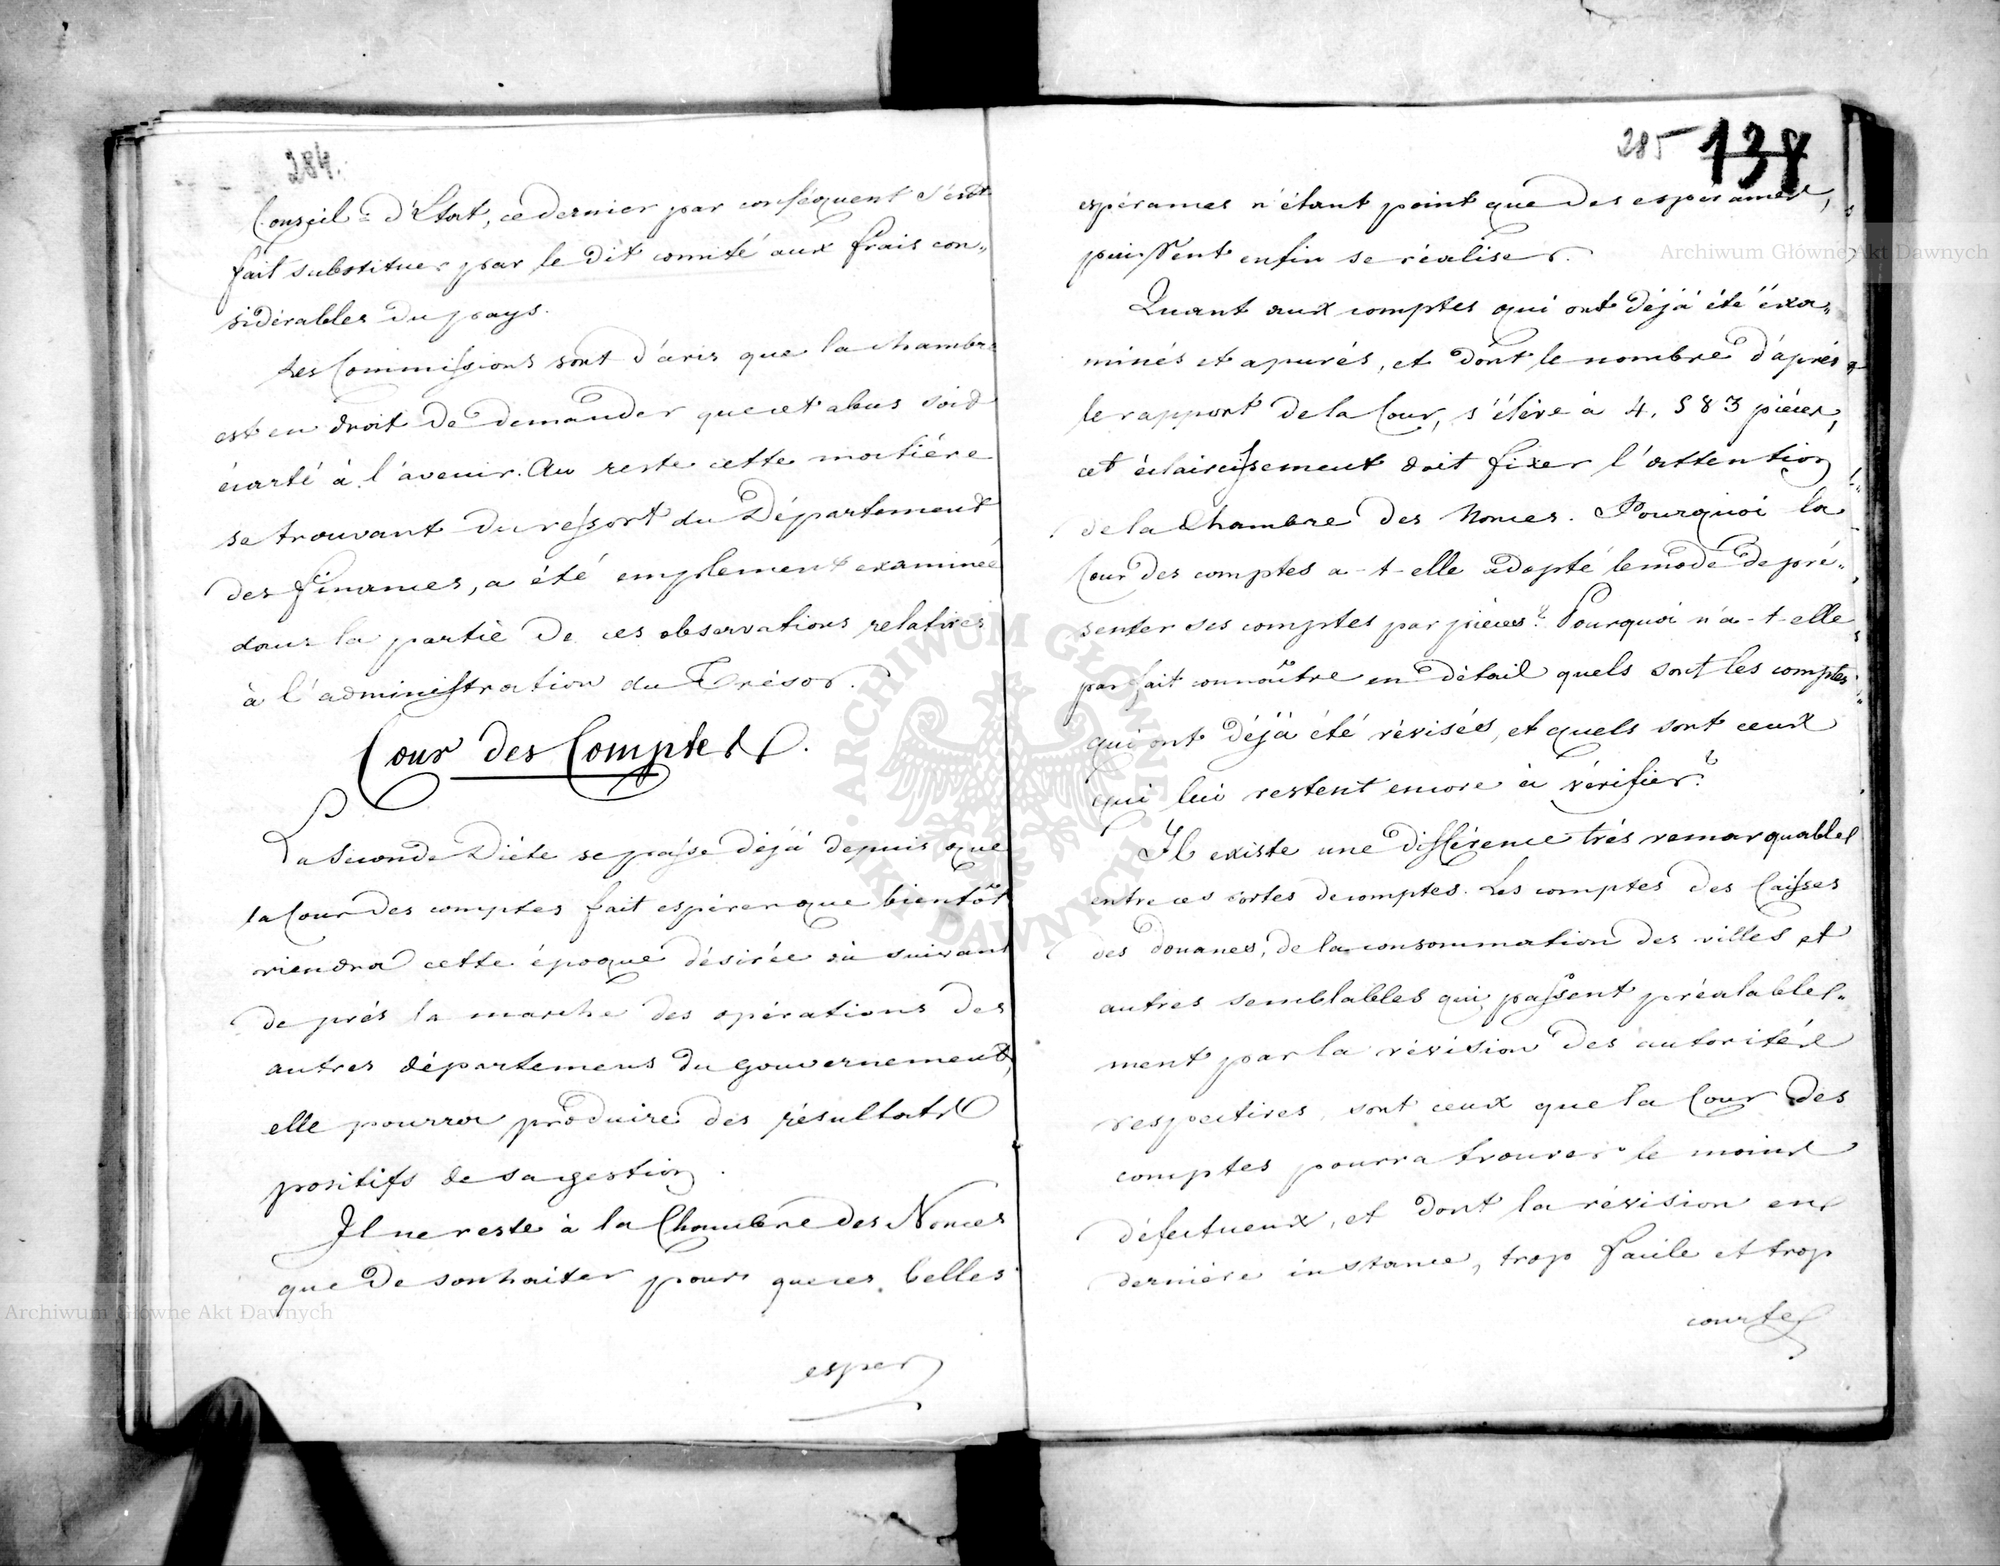 284.
Conseil d'Etat, ce dernier par conséquent s'est
fait substituer par le dit comité aux frais con„
sidérables du pays.
Les Commissions sont d'avis que la chambre
est en droit de demander que cet abus soit
écarté à l'avenir. Au reste cette matière
se trouvant du ressort du Département
des finances, a été emplement examinée
dans la partie de ces observations relatives
à l'administration du Trésor.
Cour des Comptes.
La seconde Diète se passe déjà depuis que
la Cour des comptes fait espérer que bientôt
viendra cette époque désirée où suivant
de près la marche des opérations des
autres départemens du gouvernement,
elle pourra produire des résultats
positifs de sa gestion.
Il ne reste à la Chambre des Nonces
que de souhaiter pour que ces belles
esper
285 138
espérances n'étant point que des espérances,
puissent enfin se réaliser.
Quant aux comptes qui ont déjà été exa„
minés et apurés, et dont le nombre d'après
le rapport de la Cour, s'élève à 4,583 pièces,
cet éclaircissement doit fixer l'attention
de la Chambre des Nonces. Pourquoi la
Cour des comptes a-t-elle adopté le mode de pré„
senter ses comptes par pièces? Pourquoi n'a-t-elle
pas fait connaître en détail quels sont les comptes
qui ont déjà été révisés, et quels sont ceux
qui lui restent encore à vérifier?
Il existe une différence très remarquable
entre ces sortes de comptes. Les comptes des Caisses
des douanes, de la consommation des villes et
autres semblables qui passent préalable„
ment par la révision des autorités
respectives, sont ceux que la Cour des
comptes pourra trouver le moins
défectueux, et dont la révision en
dernière instance, trop facile et trop
courte
Archiwum Główne Akt Dawnych
Archiwum Główne Akt Dawnych
ARCHIWUM GŁÓWNE AKT DAWNYCH